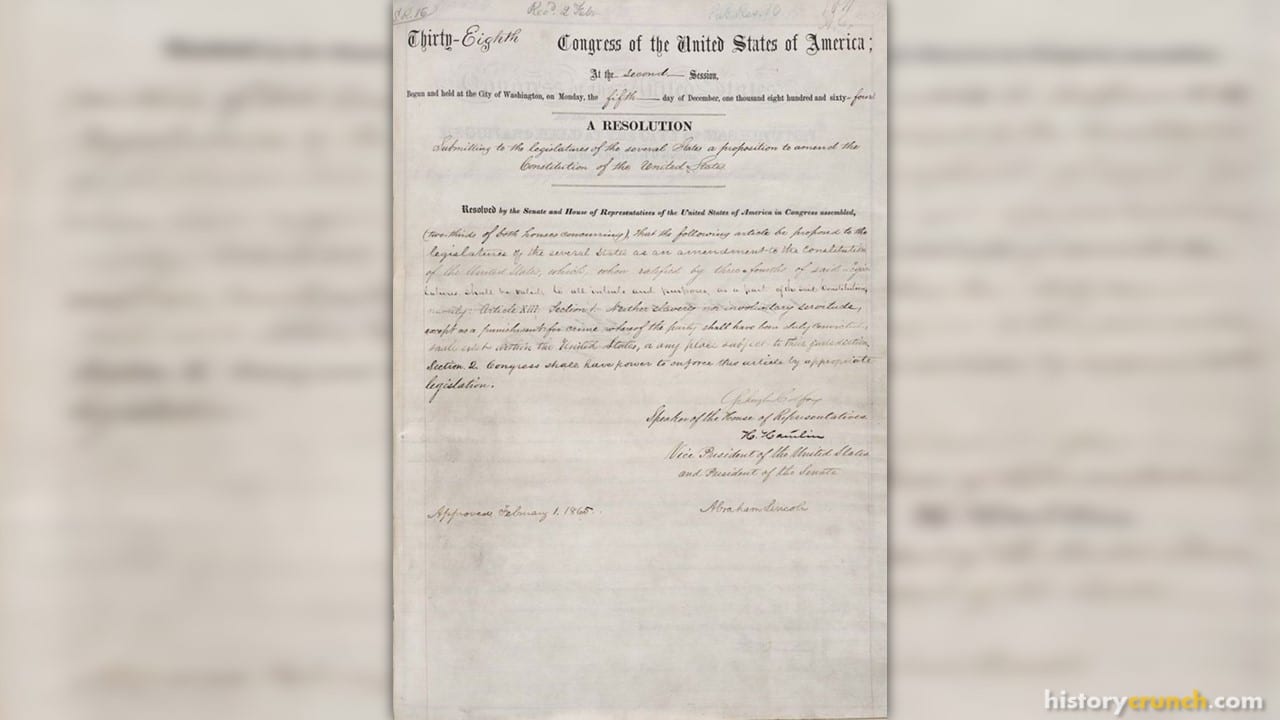 S.R. 16
Rec'd 2 Feb
Pub. Res. 10
Thirty-Eighth Congress of the United States of America;
At the second Session,
Begun and held at the City of Washington, on Monday, the fifth day of December, one thousand eight hundred and sixty-four
A RESOLUTION
Submitting to the legislatures of the several States a proposition to amend the
Constitution of the United States
Resolved by the Senate and House of Representatives of the United States of America in Congress assembled,
(two-thirds of both houses concurring), That the following article be proposed to the
legislatures of the several States as an amendment to the Constitution
of the United States, which, when ratified by three-fourths of said Legis-
latures shall be valid, to all intents and purposes, as a part of the said Constitution,
namely: Article XIII. Section 1. Neither slavery nor involuntary servitude,
except as a punishment for crime whereof the party shall have been duly convicted,
shall exist within the United States, or any place subject to their jurisdiction.
Section 2. Congress shall have power to enforce this article by appropriate
legislation.
Schuyler Colfax
Speaker of the House of Representatives
H. Hamlin
Vice President of the United States
and President of the Senate
Approved, February 1. 1865. Abraham Lincoln
historycrunch.com